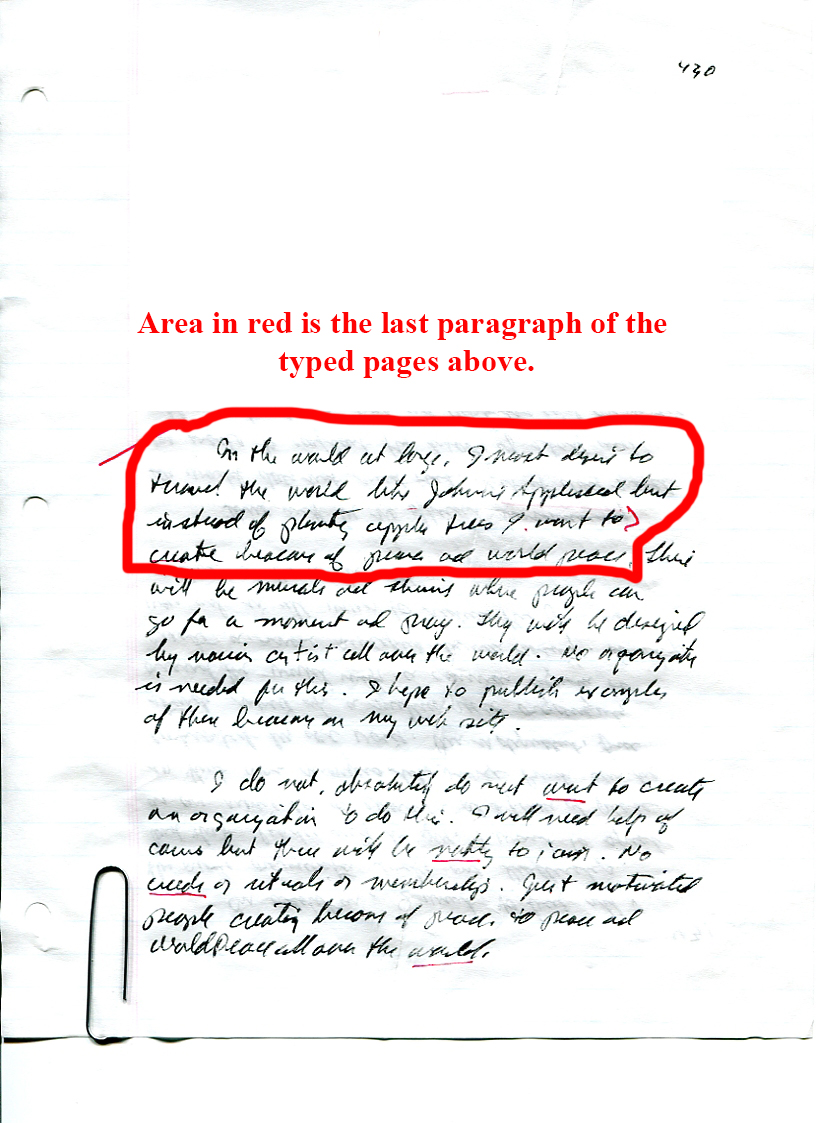 430
Area in red is the last paragraph of the
typed pages above.
In the world at large, I most desire to
travel the world like Johnny Appleseed but
instead of planting apple trees I want to
create beacons of peace and world peace. These
will be murals and shrines where people can
go for a moment and pray. They will be designed
by various artist all over the world. No organization
is needed for this. I hope to publish examples
of these beacons on my web site.
I do not, absolutely do not want to create
an organization to do this. I will need help of
course but there will be nothing to join. No
creeds or rituals or memberships. Just motivated
people creating beacons of peace to peace and
World Peace all over the world.